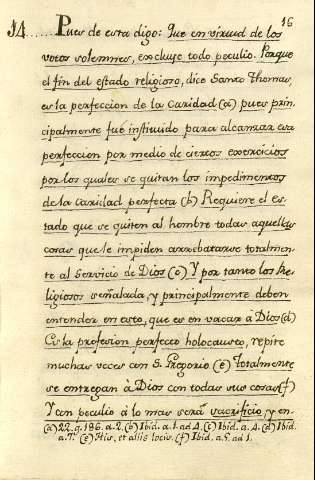 16
14..... Pues de esta digo: Que en virtud de los
votos solemnes, excluye todo peculio. Porque
el fin del estado religioso, dice Santo Thomas,
es la perfeccion de la Caridad (a) pues prin-
cipalmente fué instituido para alcanzar esa
perfeccion por medio de ciertos exercicios
por los quales se quitan los impedimentos
de la caridad perfecta (b) Requiere el es-
tado que se quiten al hombre todas aquellas
cosas que le impiden arrebatarse totalmen-
te al Servicio de Dios (c) Y por tanto los Re-
ligiosos señalada, y principalmente deben
entender en esto, que es en vacar à Dios (d)
Es la profesion perfecto holocausto, repite
muchas veces con S. Gregorio (e) totalmente
se entregan à Dios con todas sus cosas (f)
Y con peculio à lo mas será sacrificio, y en-
(a) 22. q. 186. a. 2. (b) Ibid. a. 1. ad 4. (c) Ibid. a. 4. (d) Ibid.
a. 7. (e) His, et aliis locis. (f) Ibid. a. 5. ad 1.